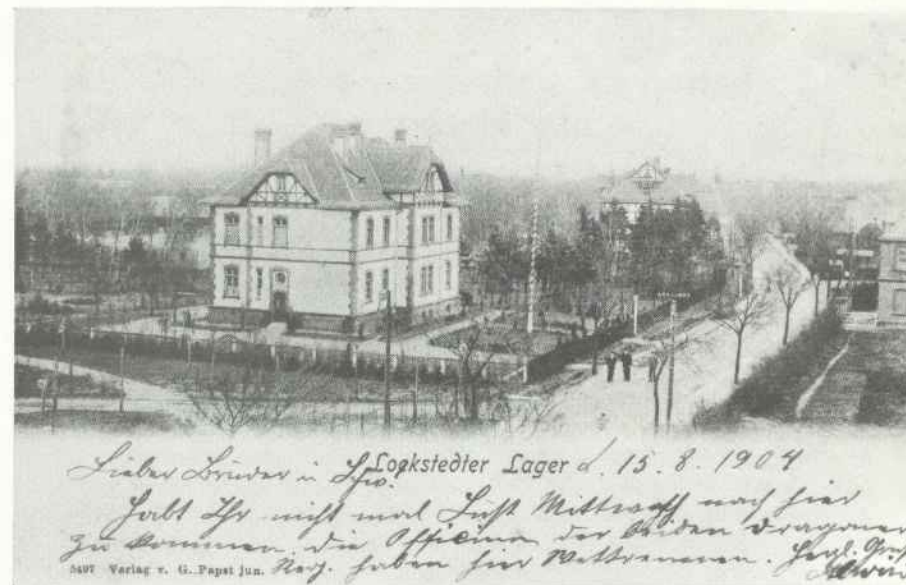 Lieber Bruder u. Schw. Lockstedter Lager d. 15. 8. 1904
Habt Ihr nicht mal Lust Mittwoch nach hier
zu kommen. Die Officiere der beiden Dragoner
Reg. haben hier Wettrennen. Herzl. Gruß
5497 Verlag v. G. Papst jun.